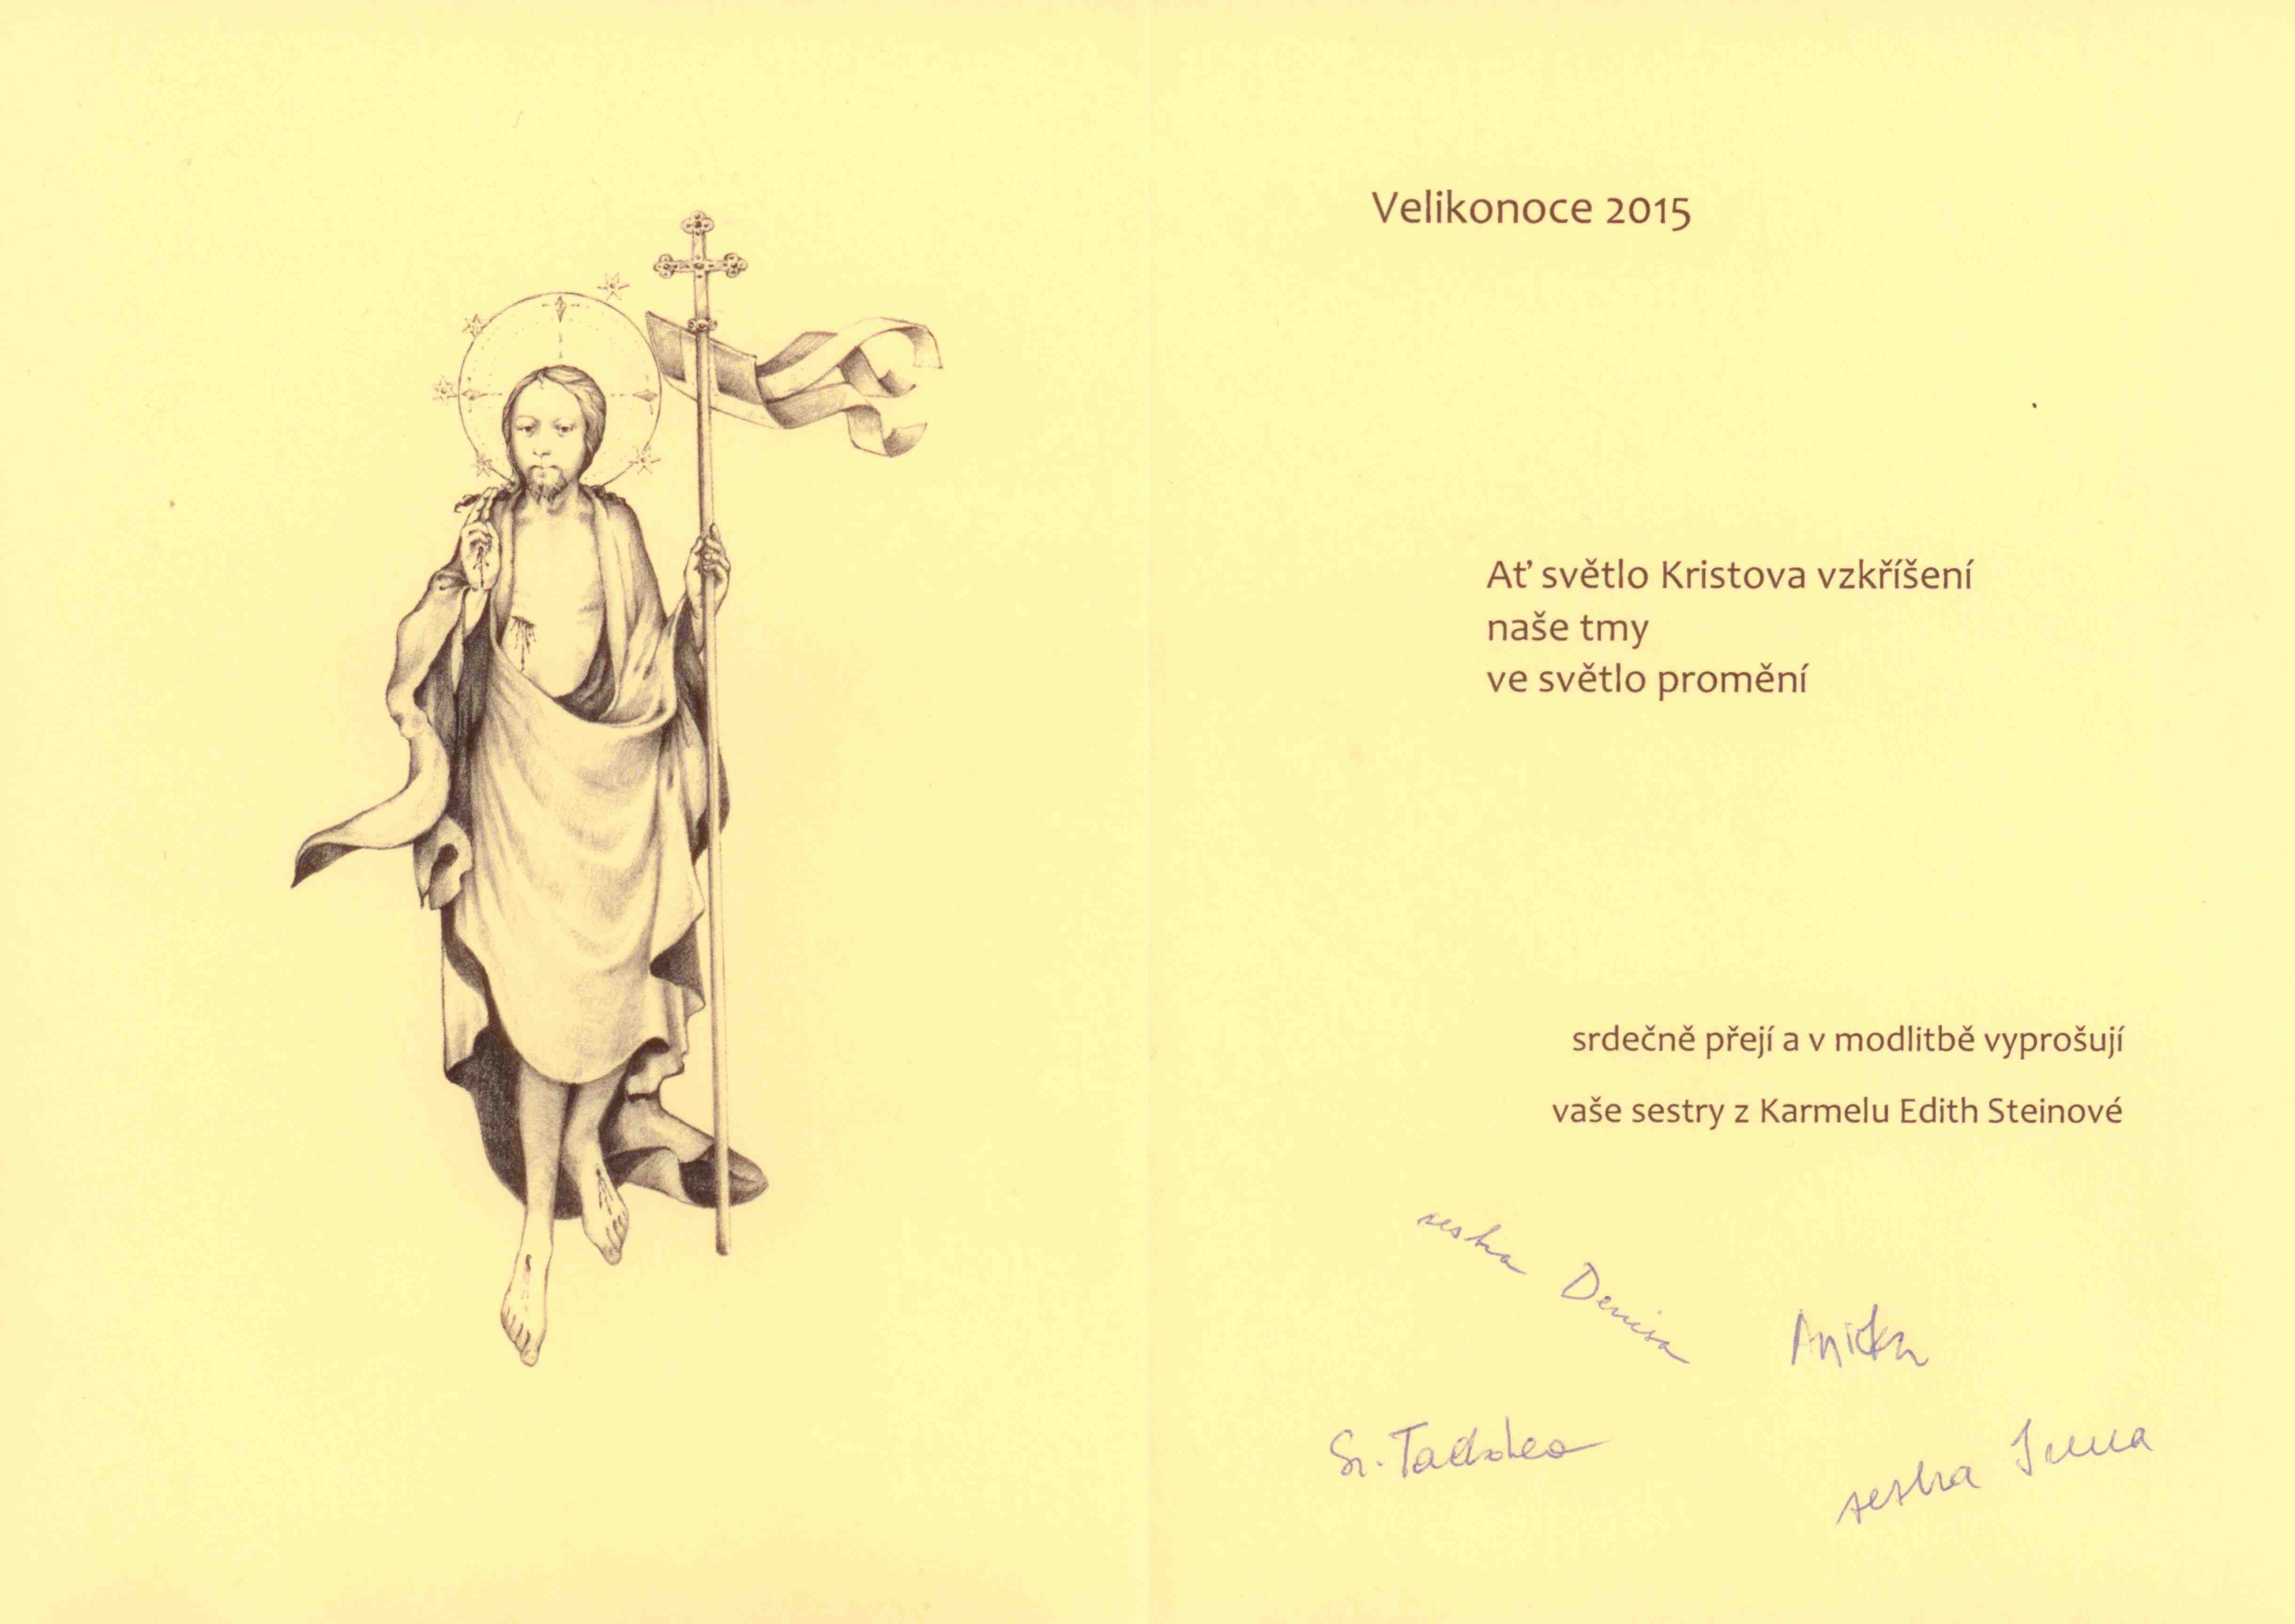 Velikonoce 2015
Ať světlo Kristova vzkříšení
naše tmy
ve světlo promění
srdečně přejí a v modlitbě vyprošují
vaše sestry z Karmelu Edith Steinové
sestra Denisa
Anička
Sr.
sestra